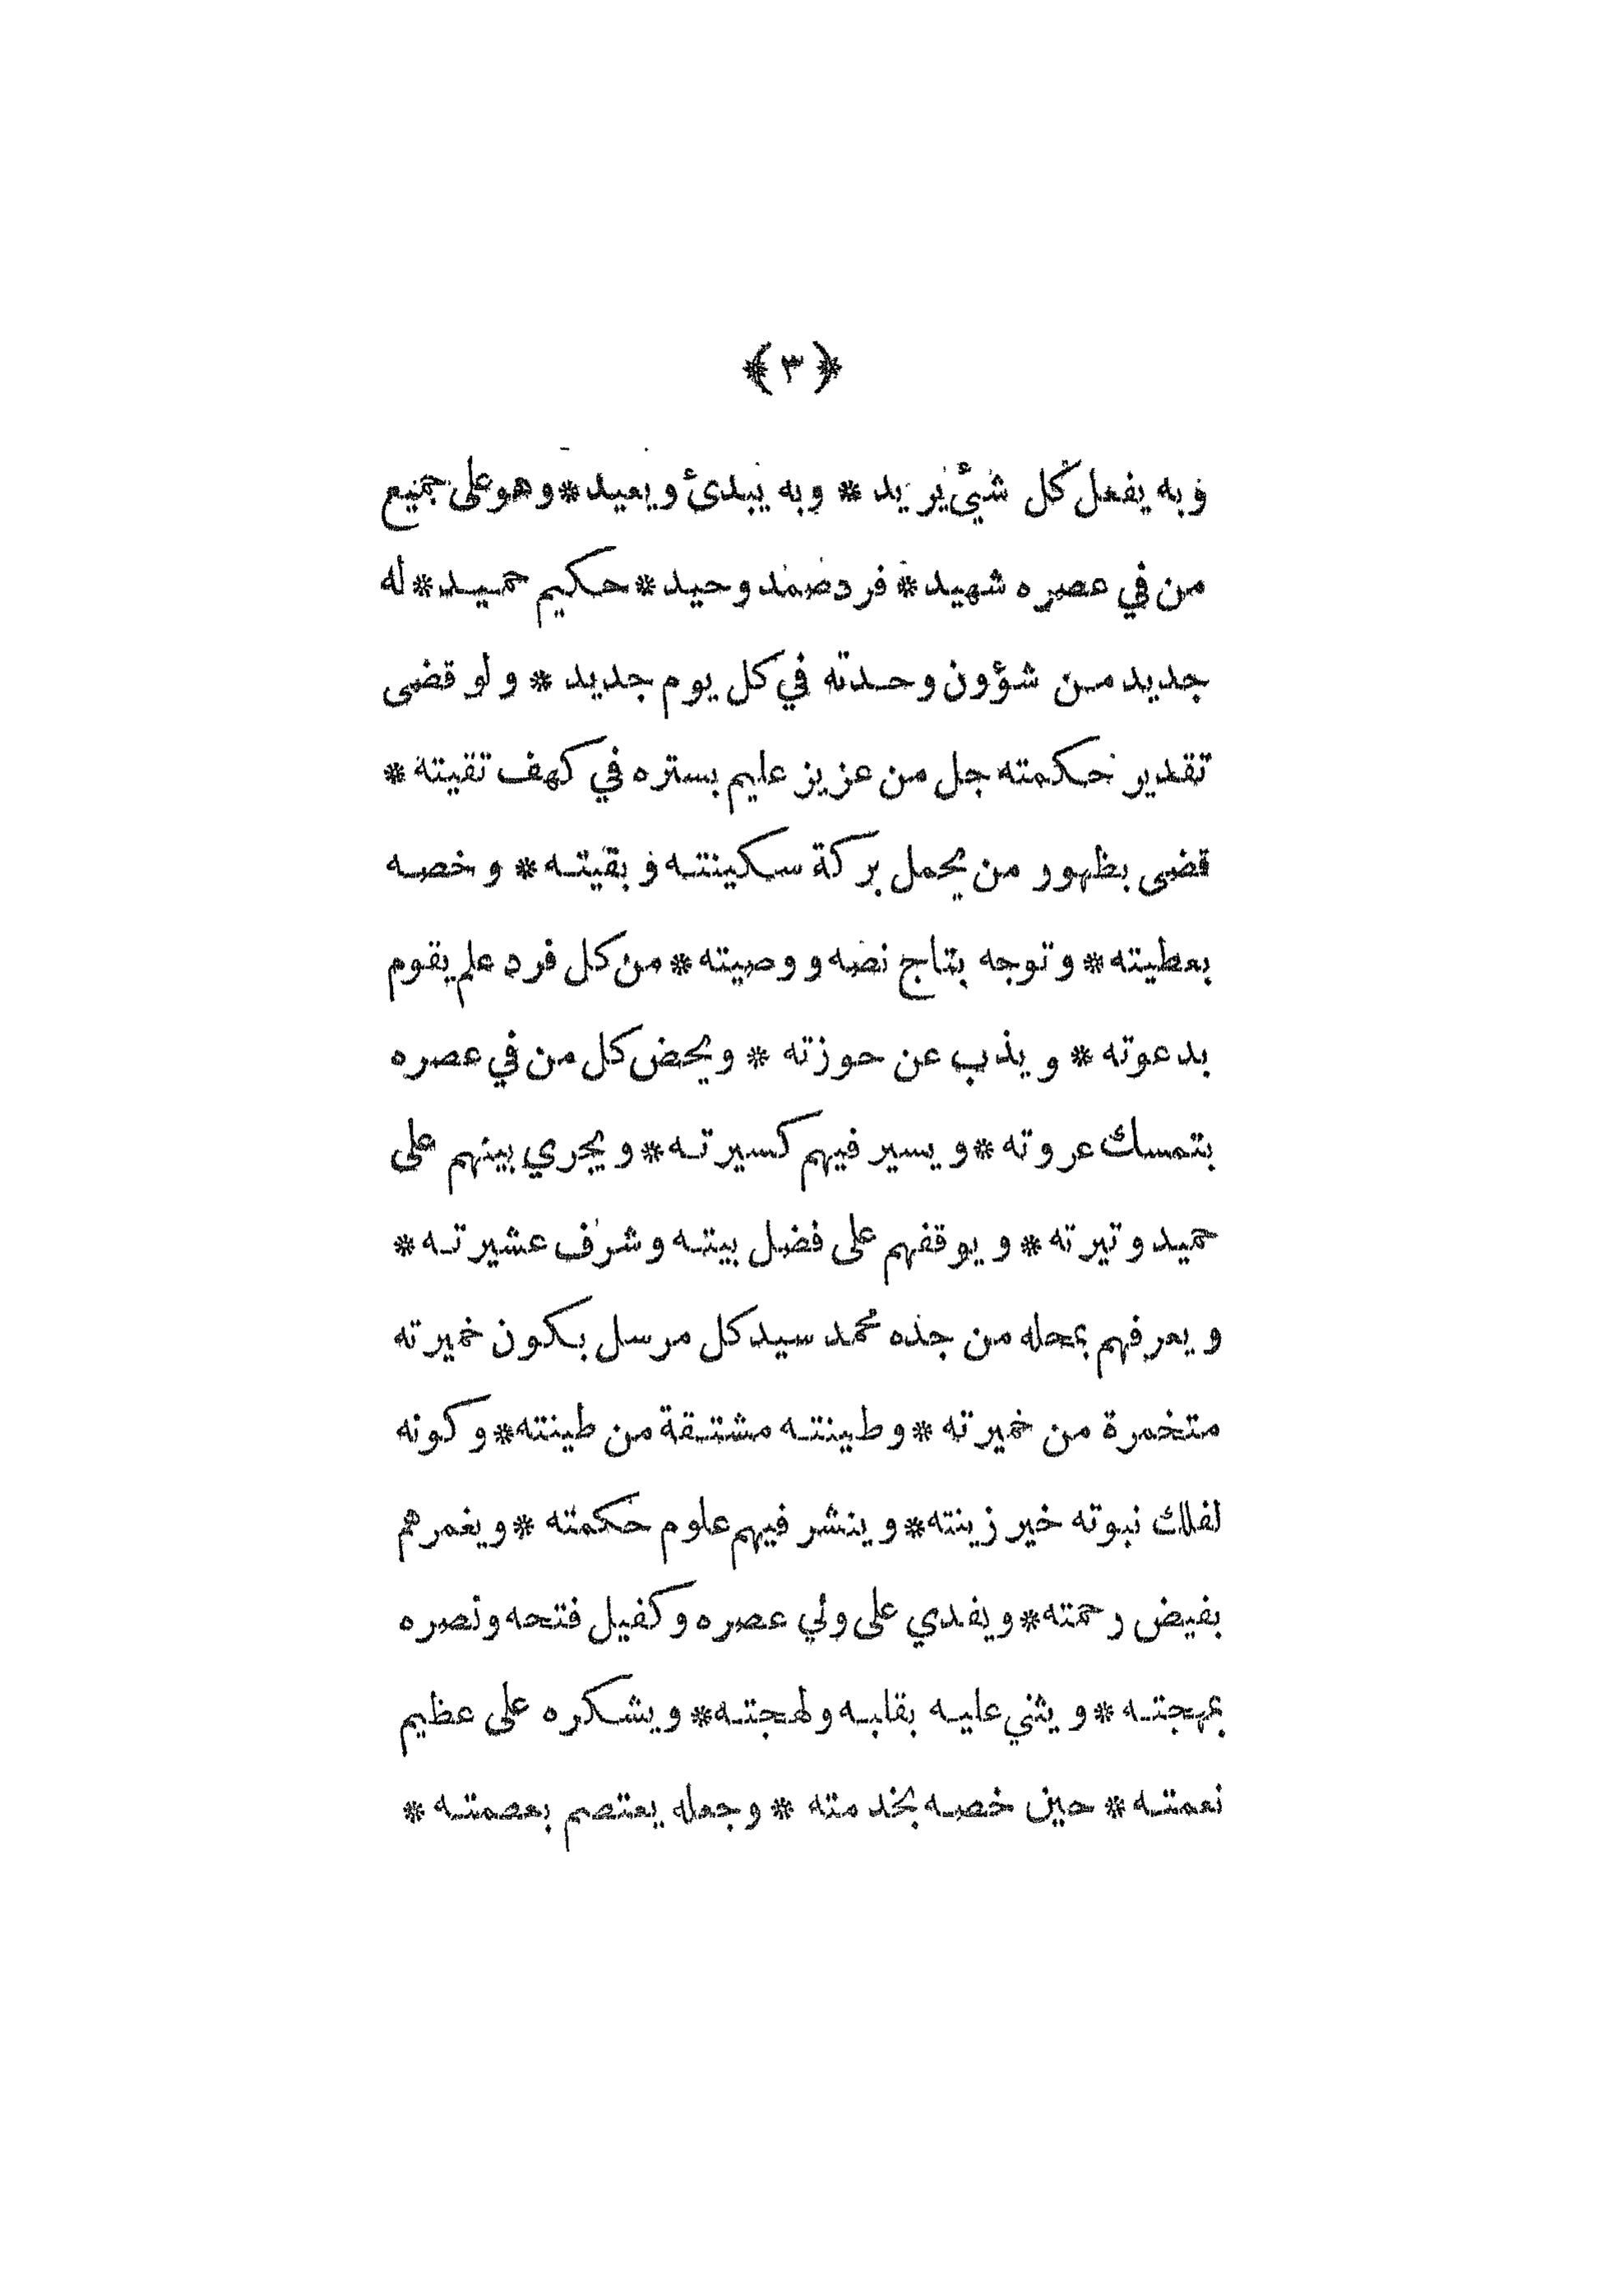 ﴿ ٣ ﴾
وبه يفعل كل شيئ يريد * وبه يبدئ ويعيد * وهو على جميع
من في عصره شهيد * فرد صمد وحيد * حكيم حميد * له
جديد من شؤون وحدته في كل يوم جديد * ولو قضى
تقدير حكمته جل من عزيز عليم بستره في كهف تقيته *
قضى بظهور من يحمل بركة سكينته وبقيته * وخصه
بعطيته * وتوجه بتاج نصه ووصيته * من كل فرد علم يقوم
بدعوته * ويذب عن حوزته * ويحض كل من في عصره
بتمسك عروته * ويسير فيهم كسيرته * ويجري بينهم على
حميد وتيرته * ويوقفهم على فضل بيته وشرف عشيرته *
ويعرفهم بمحله من جده محمد سيد كل مرسل بكون خميرته
متخمرة من خميرته * وطينته مشتقة من طينته * وكونه
لفلك نبوته خير زينته * وينشر فيهم علوم حكمته * ويغمرهم
بفيض رحمته * ويفدي على ولي عصره وكفيل فتحه ونصره
بمهجته * ويثني عليه بقلبه ولهجته * ويشكره على عظيم
نعمته * حين خصه بخدمته * وجعله يعتصم بعصمته *